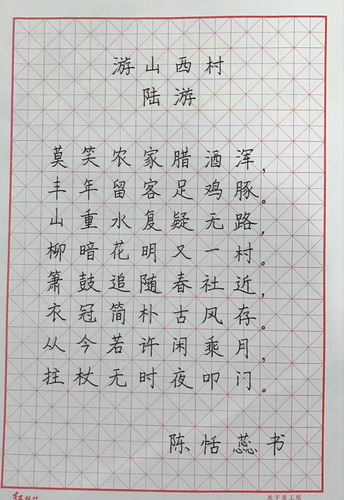 游山西村
陆游
莫笑农家腊酒浑，
丰年留客足鸡豚。
山重水复疑无路，
柳暗花明又一村。
箫鼓追随春社近，
衣冠简朴古风存。
从今若许闲乘月，
拄杖无时夜叩门。
陈恬蕊书